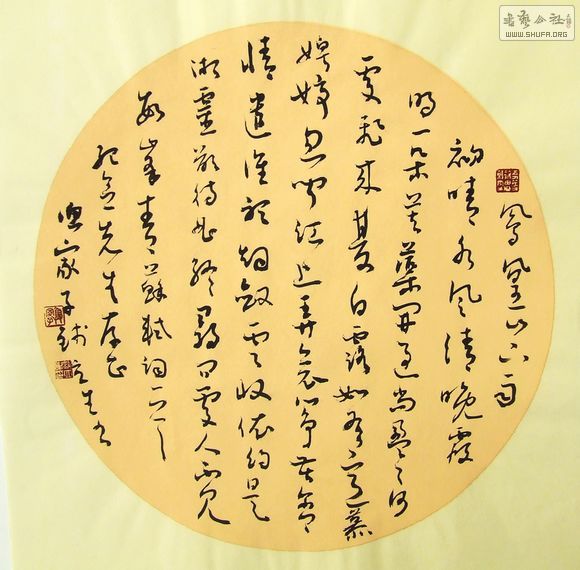 書藝公社
WWW.SHUFA.ORG
鳳凰山下雨
初晴水風清晚霞
明一朵芙蕖開過尚盈盈何
處飛來雙白鷺如有意慕
娉婷忽聞江上弄哀箏苦含
情遣誰聽烟斂雲收依約是
湘靈欲待曲終尋問處人不見
數峰青蘇軾詞一首
先生存正